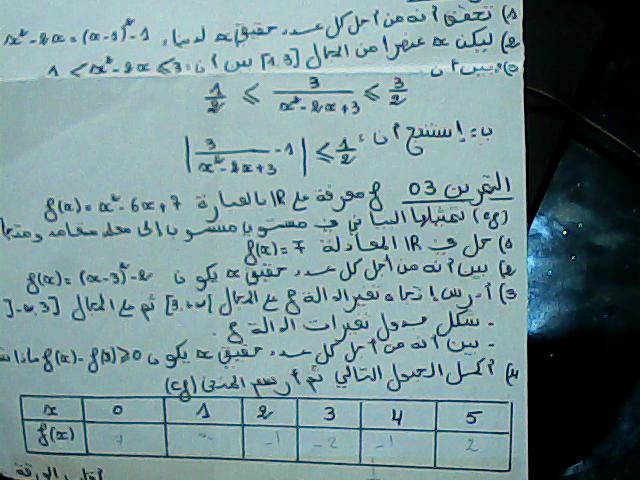 1) تحقق أنه من أجل كل عدد حقيقي x لدينا: x² - 2x = (x-1)² - 1
2) ليكن x عنصرا من المجال [1,3] بين أن: 1 < x² - 2x ≤ 3
بين أن:
1/2 ≤ 3/(x² - 2x + 3) ≤ 3/2
ب: إستنتج أن: |3/(x² - 2x + 3) - 1| ≤ 1/2
التمرين 03 f معرفة على IR بالعبارة f(x) = x² - 6x + 7
(Cf) تمثيلها البياني في مستو منسوب الى معلم متعامد ومتجا
1) حل في IR المعادلة f(x) = 7
2) بين أنه من أجل كل عدد حقيقي x يكون f(x) = (x-3)² - 2
3) أدرس إتجاه تغير الدالة f على المجال [3,+∞[ ثم على المجال ]-∞,3]
- شكل جدول تغيرات الدالة f.
- بين أنه من أجل كل عدد حقيقي x يكون f(x) - f(3) ≥ 0 ماذا
4) أكمل الجدول التالي ثم أرسم المنحنى (Cf)
x 0 1 2 3 4 5
f(x) 7 -1 -2 -1 2
أقلب الورقة